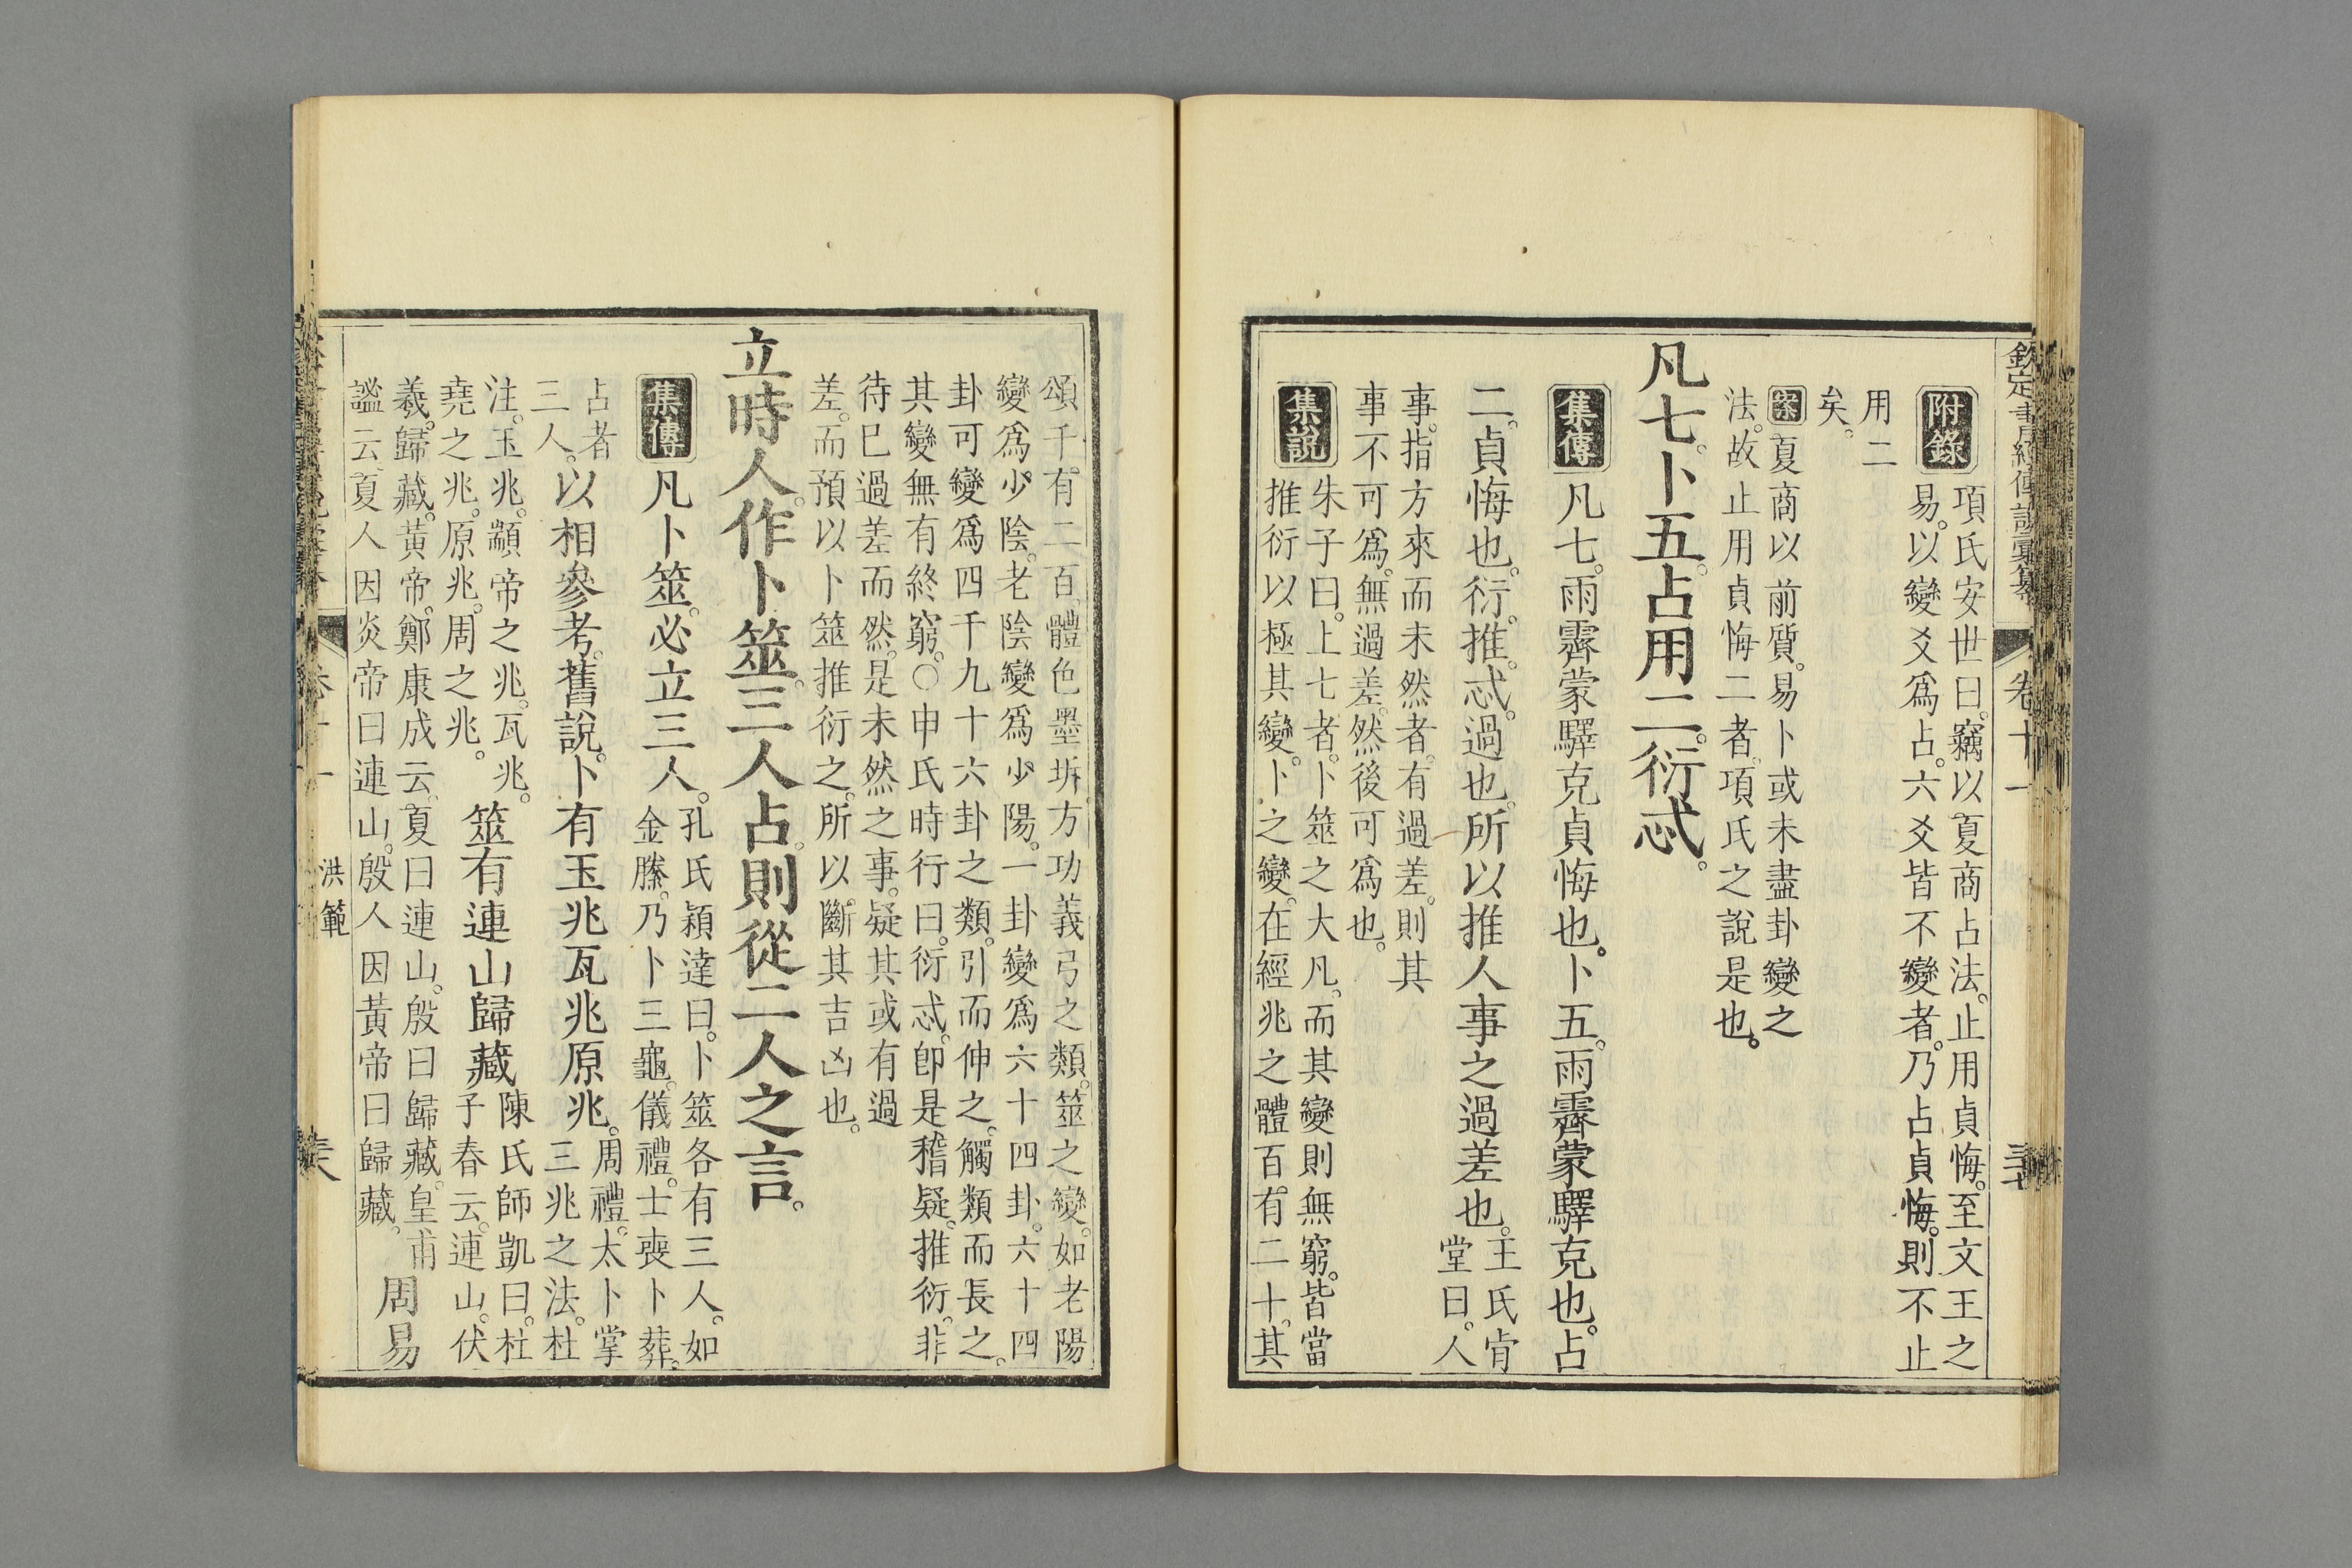 欽定書經傳說彙纂 卷十一
附錄
項氏安世曰。竊以夏商占法。止用貞悔。至文王之
易。以變爻爲占。六爻皆不變者。乃占貞悔。則不止
用二
矣。
案夏商以前質。易卜或未盡卦變之
法。故止用貞悔二者。項氏之說是也。
凡七。卜五。占用二。衍忒。
集傳 凡七。雨霽蒙驛克貞悔也。卜五。雨霽蒙驛克也。占
二。貞悔也。衍。推。忒。過也。所以推人事之過差也。
王氏肯
堂曰。人
事。指方來而未然者。有過差。則其
事不可爲。無過差。然後可爲也。
集說
朱子曰。上七者。卜筮之大凡。而其變則無窮。皆當
推衍以極其變。卜之變。在經兆之體百有二十。其
頌千有二百。體色墨坼方功義弓之類。筮之變。如老陽
變爲少陰。老陰變爲少陽。一卦變爲六十四卦。六十四
卦可變爲四千九十六卦之類。引而伸之。觸類而長之。
其變無有終窮。○申氏時行曰。衍忒。卽是稽疑。推衍。非
待已過差而然。是未然之事。疑其或有過
差。而預以卜筮推衍之。所以斷其吉凶也。
立時人作卜筮。三人占。則從二人之言。
集傳 凡卜筮。必立三人。
孔氏穎達曰。卜筮各有三人。如
金縢。乃卜三龜。儀禮。士喪卜葬。
占者
三人。
以相參考。舊說。卜有玉兆瓦兆原兆。
周禮。太卜掌
三兆之法。杜
注。玉兆。顓帝之兆。瓦兆。
堯之兆。原兆。周之兆。
筮有連山歸藏
陳氏師凱曰。杜
子春云。連山。伏
羲。歸藏。黃帝。鄭康成云。夏曰連山。殷曰歸藏。皇甫
謐云。夏人因炎帝曰連山。殷人因黃帝曰歸藏。
周易
洪範